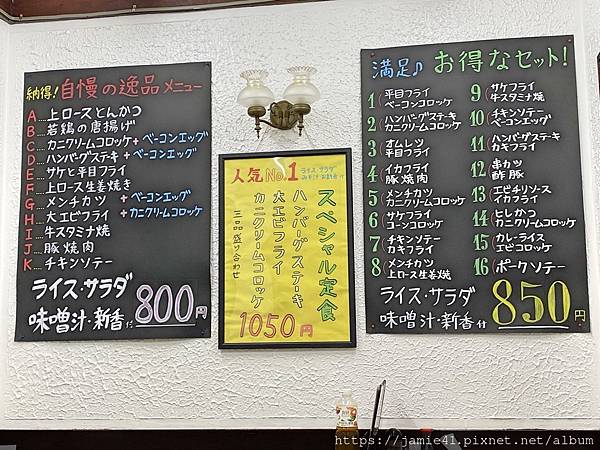 納得!自慢の逸品メニュー
A....上ロースとんかつ
B....若鶏の唐揚げ
C....カニクリームコロッケ+ベーコンエッグ
D....ハンバーグステーキ+ベーコンエッグ
E....サケと平目フライ
F....上ロース生姜焼き
G....メンチカツ+ベーコンエッグ
H....大エビフライ+カニクリームコロッケ
I....牛スタミナ焼
J....豚焼肉
K....チキンソテー
ライス・サラダ
味噌汁・新香付
800円
人気No.1
ライス サラダ
みそ汁 お新香付
スペシャル定食
ハンバーグステーキ
大エビフライ
カニクリームコロッケ
三品盛り合わせ
1050円
満足♪お得なセット!
1 平目フライ
ベーコンコロッケ
2 ハンバーグステーキ
カニクリームコロッケ
3 オムレツ
平目フライ
4 イカフライ
豚焼肉
5 メンチカツ
カニクリームコロッケ
6 サケフライ
コーンコロッケ
7 チキンソテー
カキフライ
8 メンチカツ
上ロース生姜焼
9 サケフライ
牛スタミナ焼
10 チキンソテー
ベーコンエッグ
11 ハンバーグステーキ
カキフライ
12 串カツ
酢豚
13 エビチリソース
イカフライ
14 ヒレかつ
カニクリームコロッケ
15 カレーライス
エビコロッケ
16 ポークソテー
ライス・サラダ
味噌汁・新香付
850円
https://jamie41.pixnet.net/album